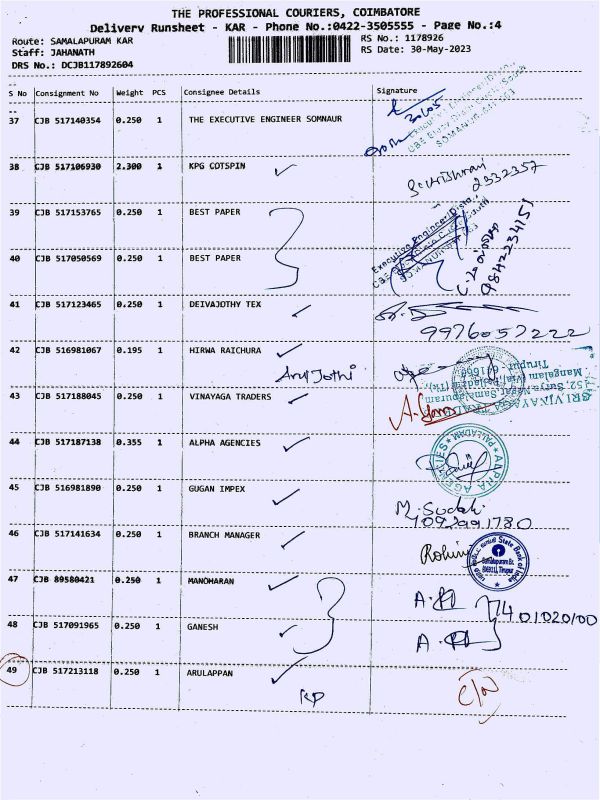 THE PROFESSIONAL COURIERS, COIMBATORE
Delivery Runsheet - KAR - Phone No.:0422-3505555 - Page No.:4
Route: SAMALAPURAM KAR
RS No.: 1178926
Staff: JAHANATH
RS Date: 30-May-2023
DRS No.: DCJB117892604
S No Consignment No Weight PCS Consignee Details Signature
37 CJB 517140354 0.250 1 THE EXECUTIVE ENGINEER SOMNAUR
38 CJB 517106930 2.300 1 KPG COTSPIN
2332357
39 CJB 517153765 0.250 1 BEST PAPER
40 CJB 517050569 0.250 1 BEST PAPER
9842234151
41 CJB 517123465 0.250 1 DEIVAJOTHY TEX
9976057222
42 CJB 516981067 0.195 1 HIRWA RAICHURA
Arul Jothi
43 CJB 517188045 0.250 1 VINAYAGA TRADERS
SRI VINAYAGA
152, Surya Nagar, Samalapuram
Mangalam (Via), Palladam (Tk),
Tirupur
44 CJB 517187138 0.355 1 ALPHA AGENCIES
ALPHA AGENCIES PALLADAM
45 CJB 516981890 0.250 1 GUGAN IMPEX
46 CJB 517141634 0.250 1 BRANCH MANAGER
Rohini
State Bank of India
Samalapuram Br.
47 CJB 89580421 0.250 1 MANOHARAN
48 CJB 517091965 0.250 1 GANESH
49 CJB 517213118 0.250 1 ARULAPPAN